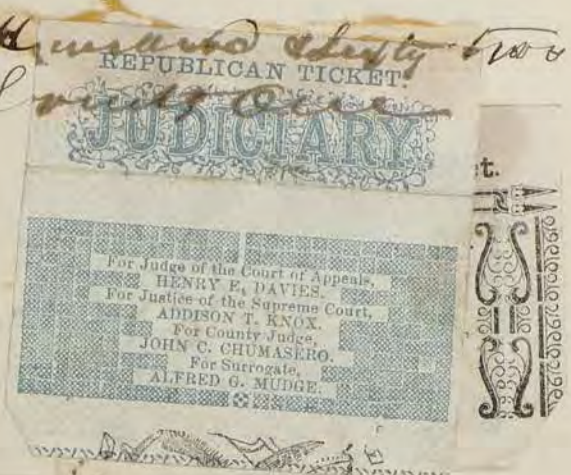 and sixty two
REPUBLICAN TICKET.
One
JUDICIARY
t.
For Judge of the Court of Appeals,
HENRY E. DAVIES.
For Justice of the Supreme Court,
ADDISON T. KNOX.
For County Judge,
JOHN C. CHUMASERO.
For Surrogate,
ALFRED G. MUDGE.